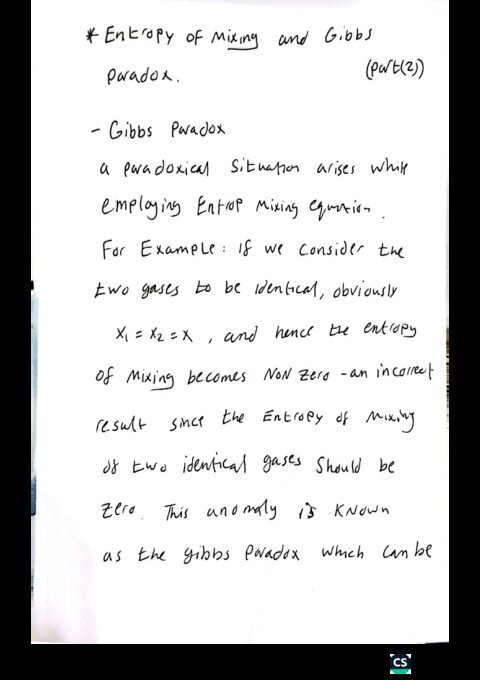 * Entropy of Mixing and Gibbs
Paradox. (Part(2))
- Gibbs Paradox
a paradoxical Situation arises while
employing Entrop Mixing equation.
For Example: if we consider the
two gases to be identical, obviously
X₁ = X₂ = X, and hence the entropy
of Mixing becomes NON Zero - an incorrect
result since the Entropy of Mixing
of two identical gases Should be
Zero. This anomaly is KNOWN
as the gibbs Paradox which can be
CS